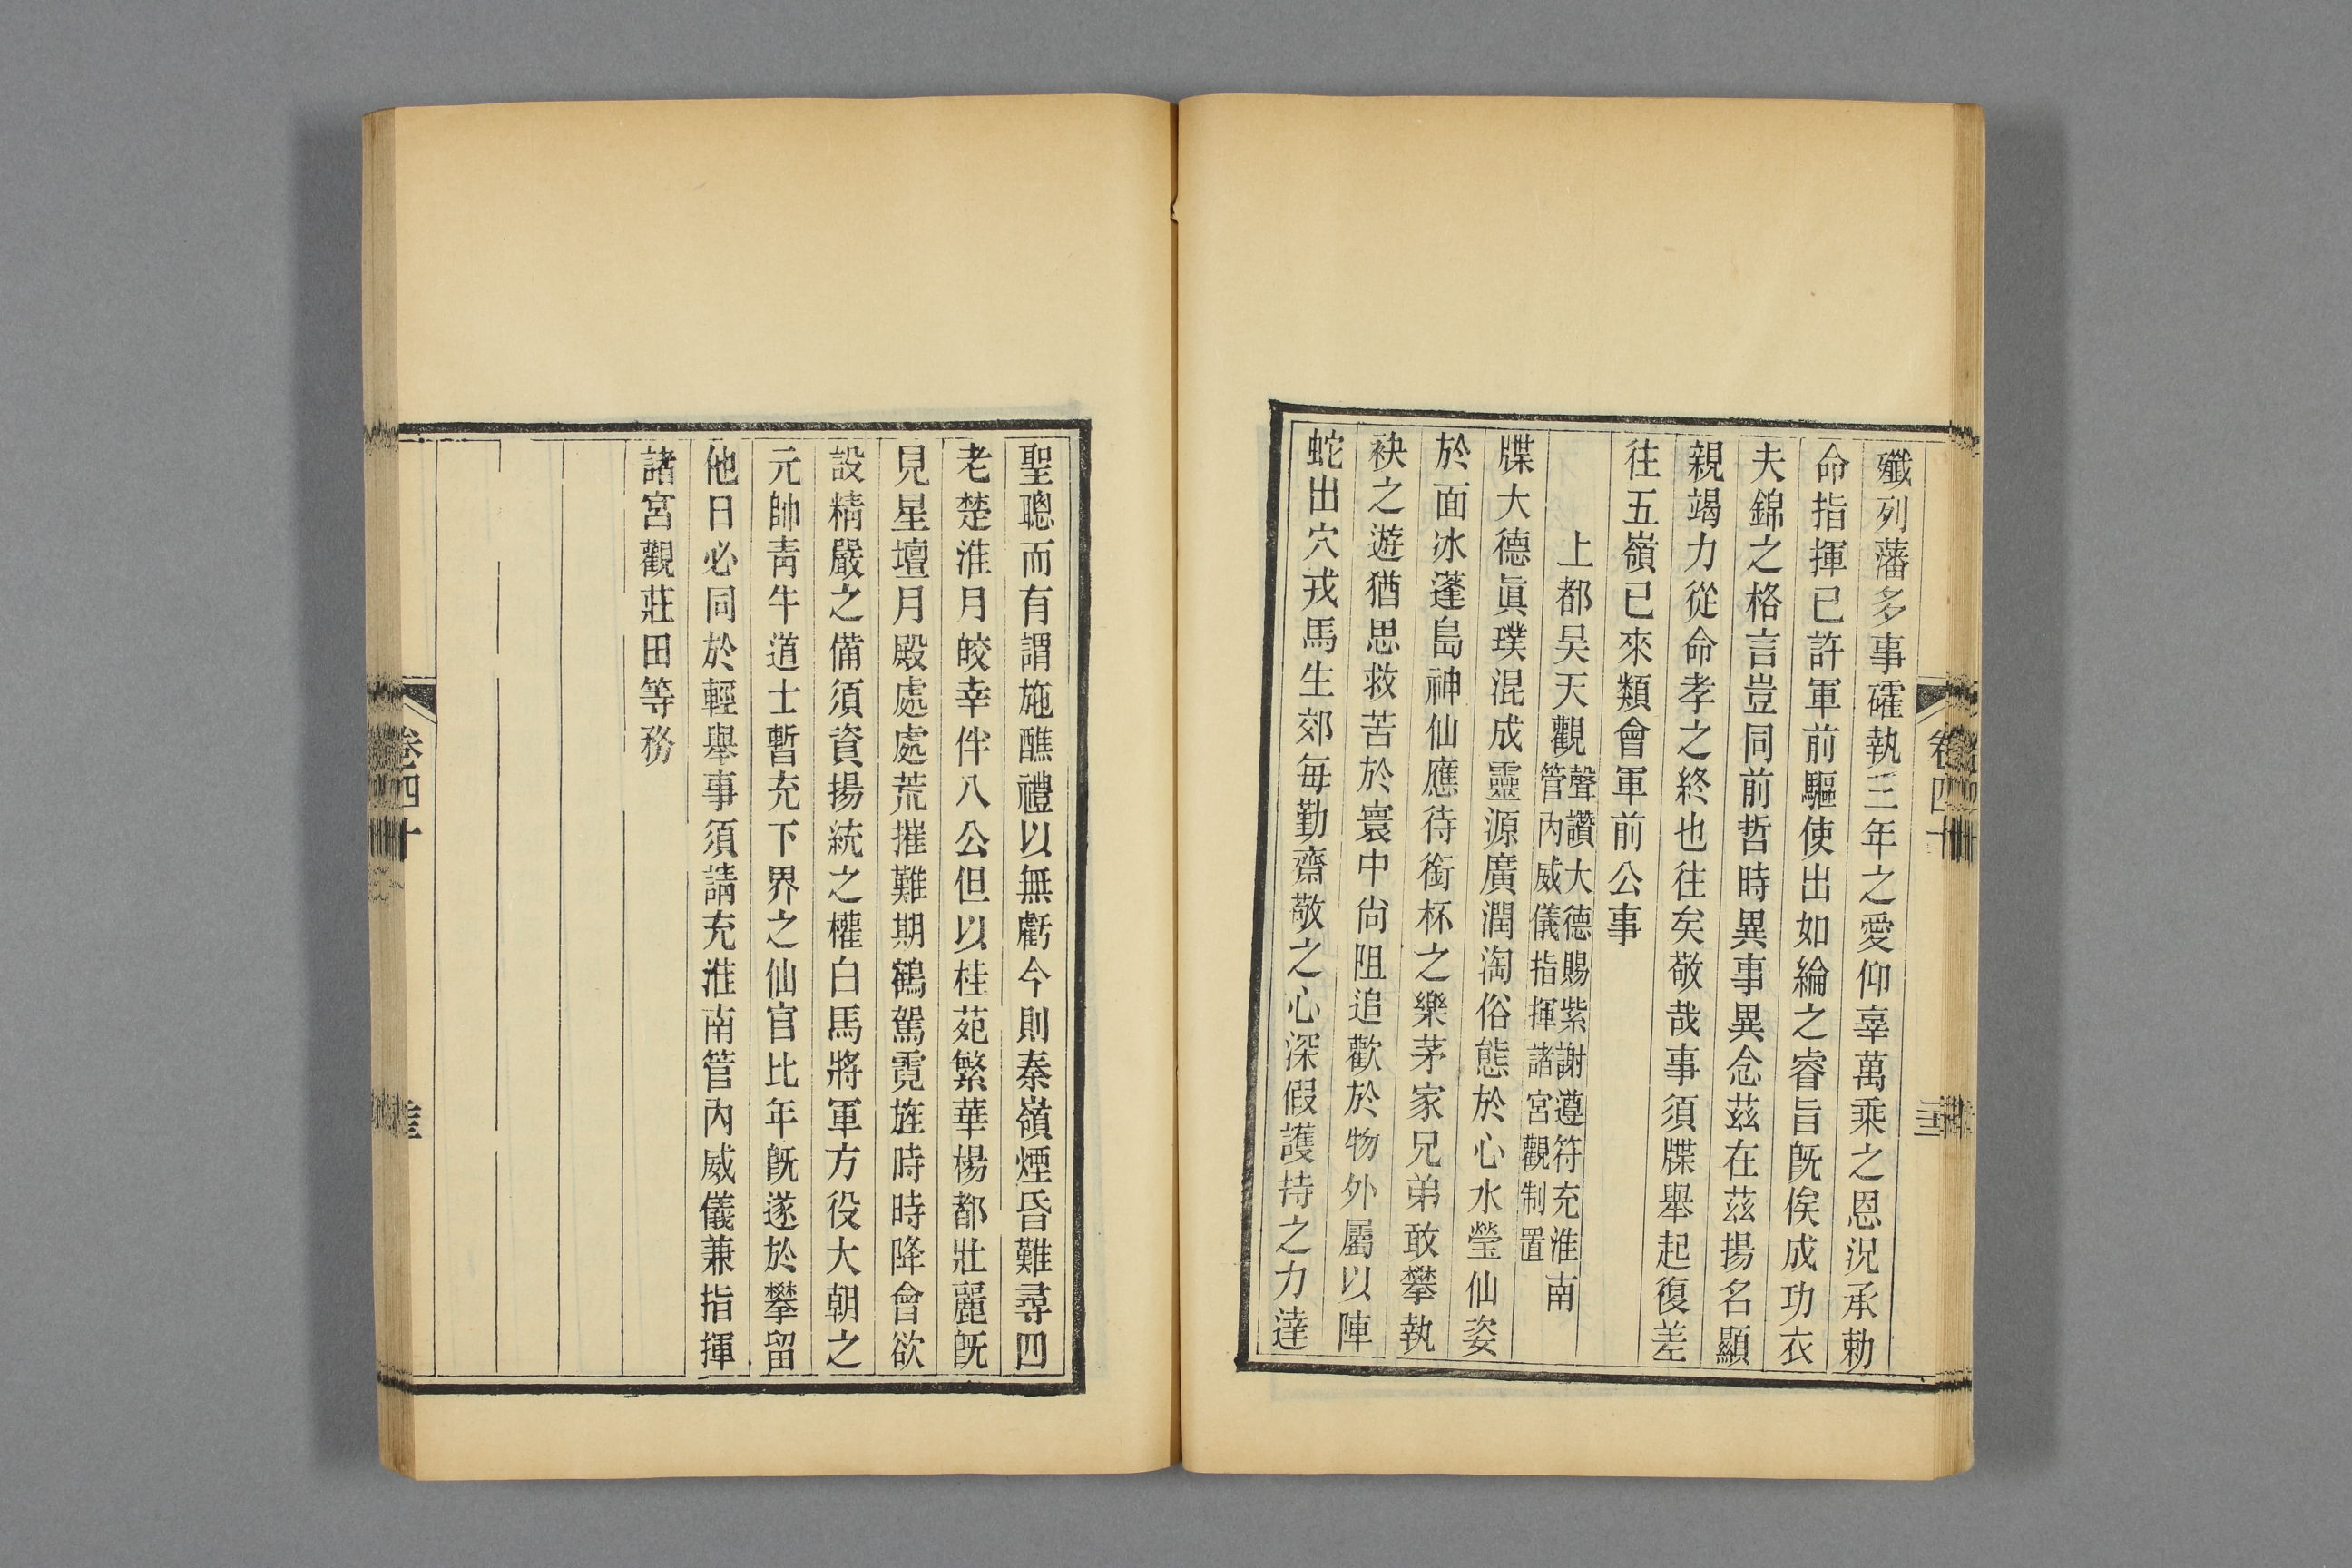 殲列藩多事確執三年之愛仰辜萬乘之恩況承勅
命指揮已許軍前驅使出如綸之睿旨旣俟成功衣
夫錦之格言豈同前哲時異事異念茲在茲揚名顯
親竭力從命孝之終也往矣敬哉事須牒舉起復差
往五嶺已來類會軍前公事
上都昊天觀聲讚大德賜紫謝遵符充淮南
管內威儀指揮諸宮觀制置
牒大德眞璞混成靈源廣潤淘俗態於心水瑩仙姿
於面冰蓬島神仙應待銜杯之樂茅家兄弟敢攀執
袂之遊猶思救苦於寰中尙阻追歡於物外屬以陣
蛇出穴戎馬生郊每勤齋敬之心深假護持之力達
聖聰而有謂施醮禮以無虧今則秦嶺煙昏難尋四
老楚淮月皎幸伴八公但以桂苑繁華楊都壯麗旣
見星壇月殿處處荒摧難期鶴駕霓旌時時降會欲
設精嚴之備須資揚統之權白馬將軍方役大朝之
元帥靑牛道士暫充下界之仙官比年旣遂於攀留
他日必同於輕舉事須請充淮南管內威儀兼指揮
諸宮觀莊田等務
卷四十